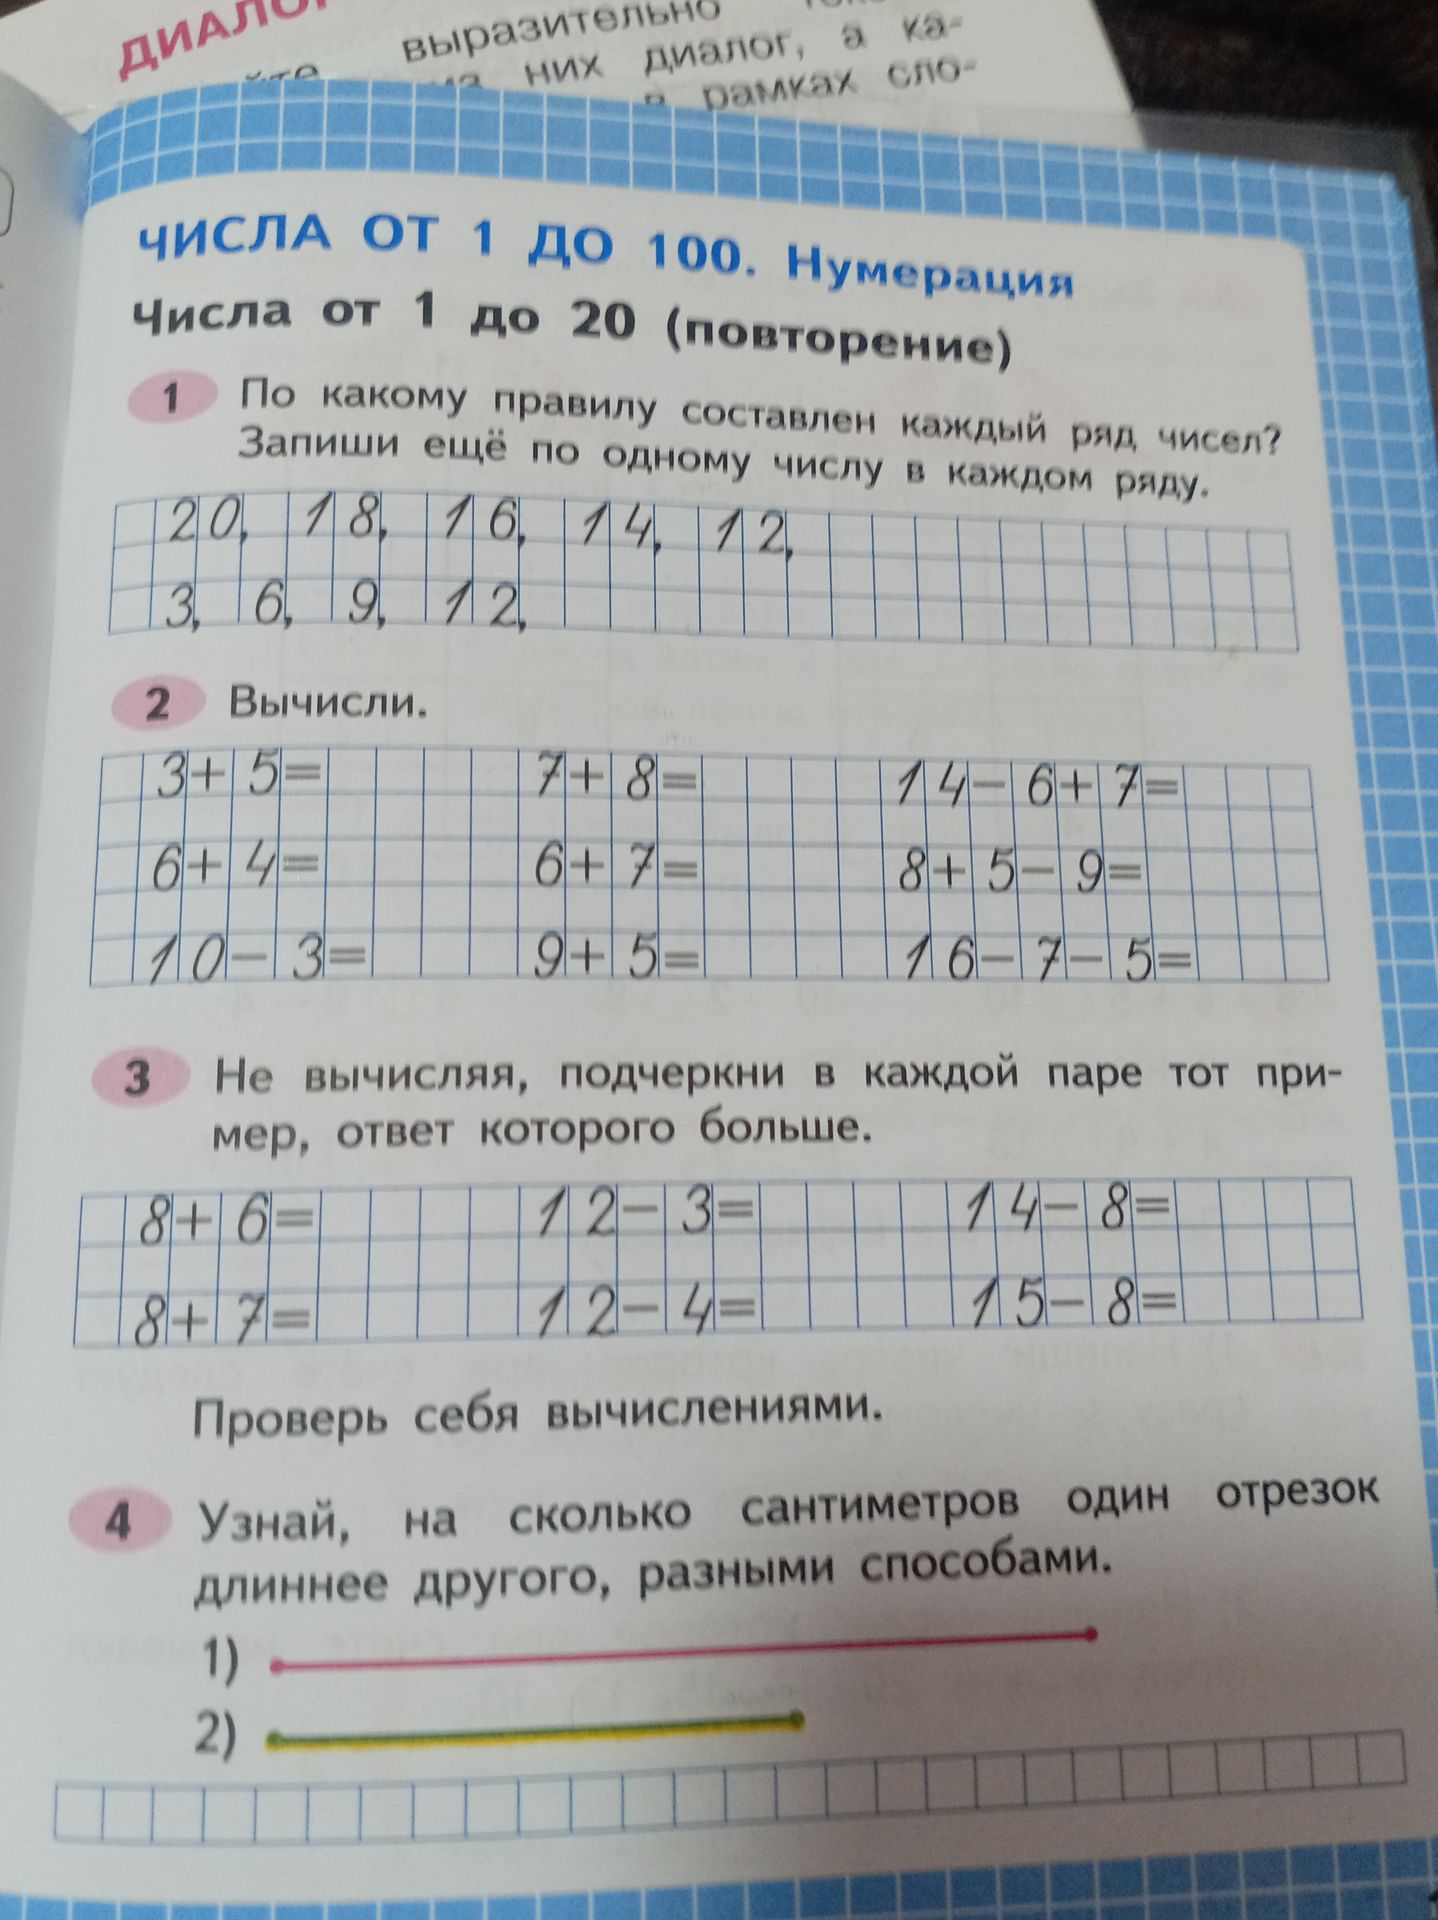 ДИАЛОГ
выразительно
них диалог, а ка-
в рамках сло-
ЧИСЛА ОТ 1 ДО 100. Нумерация
Числа от 1 до 20 (повторение)
1 По какому правилу составлен каждый ряд чисел?
Запиши ещё по одному числу в каждом ряду.
20, 18, 16, 14, 12,
3, 6, 9, 12,
2 Вычисли.
3+5= 7+8= 14-6+7=
6+4= 6+7= 8+5-9=
10-3= 9+5= 16-7-5=
3 Не вычисляя, подчеркни в каждой паре тот при-
мер, ответ которого больше.
8+6= 12-3= 14-8=
8+7= 12-4= 15-8=
Проверь себя вычислениями.
4 Узнай, на сколько сантиметров один отрезок
длиннее другого, разными способами.
1)
2)